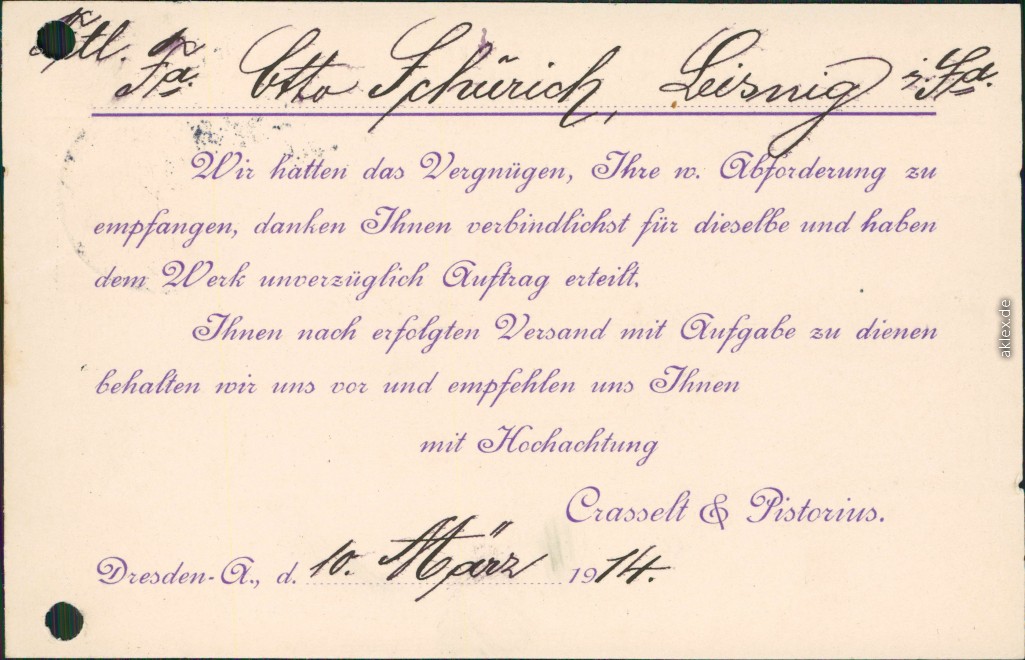 Fa. Otto Schürich, Leisnig i. Sa.
Wir hatten das Vergnügen, Ihre w. Abforderung zu
empfangen, danken Ihnen verbindlichst für dieselbe und haben
dem Werk unverzüglich Auftrag erteilt.
Ihnen nach erfolgten Versand mit Aufgabe zu dienen
behalten wir uns vor und empfehlen uns Ihnen
mit Hochachtung
Crasselt & Pistorius.
Dresden-A., d. 10. März 1914.
aklex.de